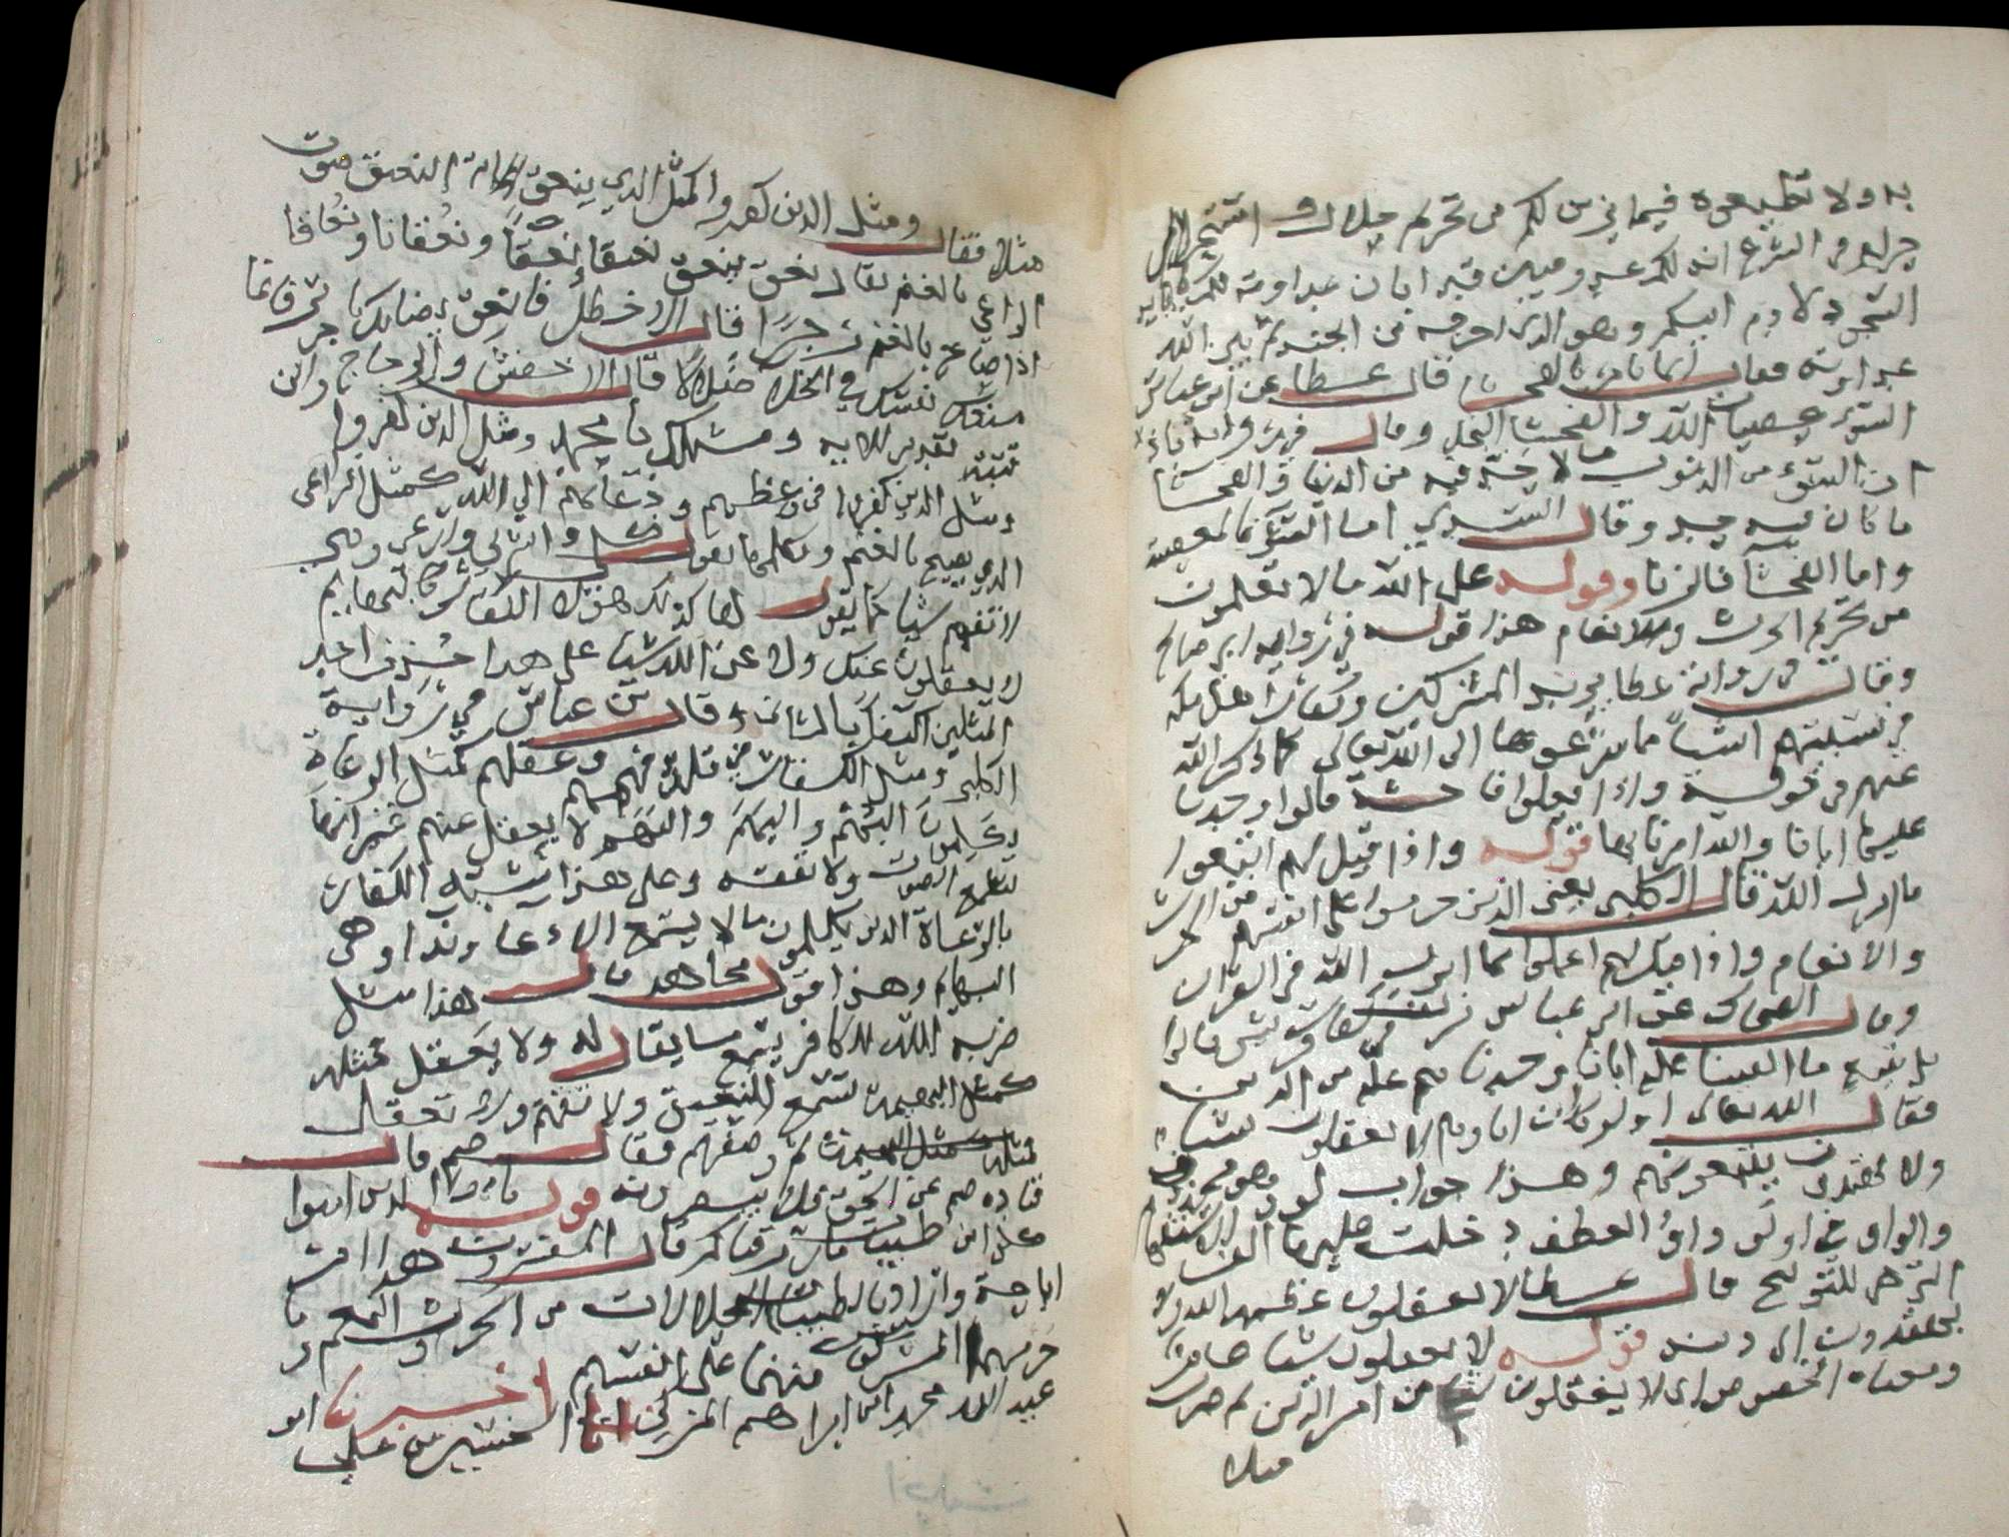 به ولا تطيعوه فيما يزين لكم من تحريم حلال او استحلال
حرام في الشرع انه لكم عدو مبين قد ابان عداوته لكم بابايه
السجود لادم ابيكم وهو الذي اخرجه من الجنة ثم بين الله
عداوته فقال انما يامركم بالسوء والفحشا قال عطا عن ابن عباس
السوء عصيان الله والفحشا البخل وقال في رواية باذان
ان السوء من الذنوب ما لا حد فيه من الدنيا والفحشا
ما كان فيه حد وقال السدي اما السوء فالمعصية
واما الفحشا فالزنا وقوله على الله ما لا تعلمون
من تحريم الحرث والانعام هذا قوله في رواية ابي صالح
وقال في رواية عطا يريد المشركين وكفار اهل مكة
في نسبتهم اشيا مما شرعوها الى الله تعالى كما ذكر الله
عنهم في قوله واذا فعلوا فاحشة قالوا وجدنا
عليها ابانا والله امرنا بها قوله واذا قيل لهم اتبعوا
ما انزل الله قال الكلبي يعني الذين حرموا على انفسهم من الحرث
والانعام واذا قيل لهم اعملوا بما انزل الله في القران
وقال الضحاك عن ابن عباس نزلت في كفار قريش قالوا
بل نتبع ما الفينا عليه ابانا وجدناهم عليه من الدين
فقال الله تعالى اولو كان اباوهم لا يعقلون شيا
ولا يهتدون يتبعونهم وهذا جواب لو وهو محذوف
والواو في اولو واو العطف دخلت عليها الف الاستفهام
التي هي للتوبيخ قال عطا لا يعقلون عظمة الله ولا
يهتدون الى دينه قوله لا يعقلون شيا عام
ومعناه الخصوص اي لا يعقلون شيا من امر الدين ثم ضرب
مثلا
مثلا فقال ومثل الذين كفروا كمثل الذي ينعق الاية النعيق صوت
الراعي بالغنم يقال نعق ينعق نعيقا ونعقا ونعقانا ونعاقا
اذا صاح بالغنم زجرا قال الاخطل فانعق بضانك يا جرير فانما
منتك نفسك في الخلا ضلالا قال الاخفش والزجاج وابن
قتيبة تقدير الاية ومثلك يا محمد ومثل الذين كفروا
ومثل الذين كفروا في وعظهم ودعائهم الى الله كمثل الراعي
الذي يصيح بالغنم ويكلمها يقول كلي واشربي وارعي وهي
لا تفهم شيا مما يقول لها كذلك هولا الكفار كالبهايم
لا يعقلون عنك ولا عن الله شيا على هذا حذف احد
المثلين اكتفا بالثاني وقال ابن عباس في رواية
الكلبي ومثل الكفار في قلة فهمهم وعقلهم كمثل الرعاة
يكلمون البهم والبهم لا يعقل عنهم غير انها
تسمع الصوت ولا تفقه وعلى هذا يشبه الكفار
بالرعاة الذين يكلمون ما لا يسمع الا دعا وندا وهي
البهايم وهذا قول مجاهد قال هذا مثل
ضربه الله للكافر يسمع ما يقال له ولا يعقل كمثل
كمثل البهيمة تسمع النعيق ولا تفهم ولا تعقل
ثم وصفهم فقال صم قال
قتاده صم عن الحق فلا يسمعونه قوله يايها الذين امنوا
كلوا من طيبات ما رزقناكم قال المفسرون هذا امر
اباحة واراد بالطيبات الحلالات من الحرث والنعم وما
حرمه المشركون منهما على انفسهم اخبرنا ابو
عبد الله محمد ابن ابراهيم المزكي انا الحسين بن علي